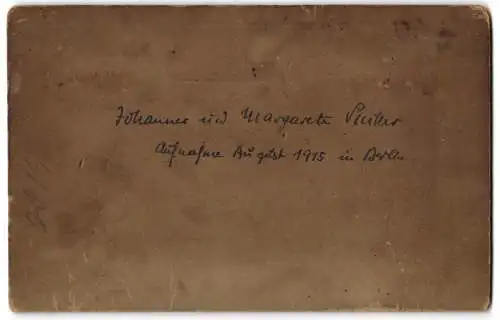 Johannes und Margarete
Aufnahme August 1915 in Berlin